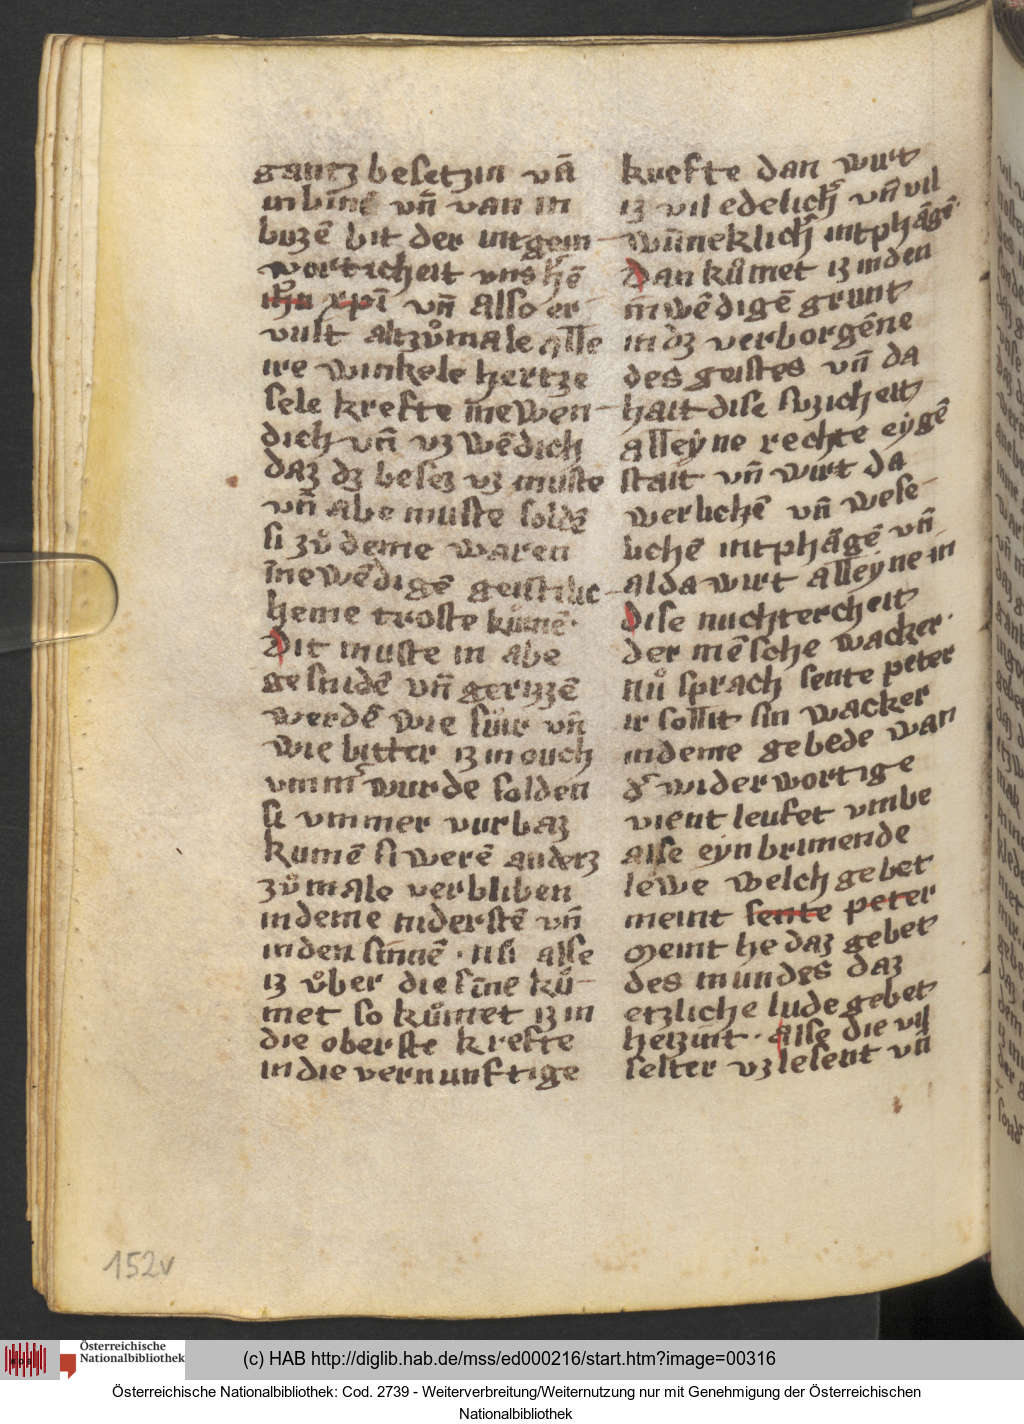 gantz besetzin vn̄
in bīnē vn̄ van in
buzē bit der vntgoin
worticheit vns hē
ih̄u xp̄i vn̄ also er
vult altzůmale alle
ire winkele hertze
sele krefte īnewen
dich vn̄ vzwēdich
daz dz besez vz muste
vn̄ abe muste soldē
si zů deme waren
īnewēdigē geistlic
heme troste kůmē·
Dit muste in abe
gesnidē vn̄ gerizzē
werdē wie sůir vn̄
wie bitter iz in ouch
vmm̄ wurde solden
si vmmer vurbaz
kumē si werē anderz
zůmale verbliben
in deme niderstē vn̄
in den sīnnē · nu alse
iz ůber die sīne ků
met so kůmet iz in
die oberste krefte
in die vernunftige
krefte dan wirt
iz vil edelich vn̄ vil
wūneklich intphāgē
Dan kůmet iz in den
īnwēdigē grunt
in dz verborgēne
des geistes vn̄ da
hait dise suzicheit
alleyne rechte eygē
stait vn̄ wirt da
werlichē vn̄ wese
lichē intphāgē vn̄
alda wirt alleyne in
Dise nuchtercheit
der mēsche wacker·
nů sprach sente peter
ir sollit sin wacker
in deme gebede wan
d' widerwortige
vient leufet vmbe
alse eyn brimmende
lewe welch gebet
meint sente peter
Meint he daz gebet
des mundes daz
etzliche lude gebet
heizint · alse die vil
selter vz lesent vn̄
152v
Österreichische
Nationalbibliothek
(c) HAB http://diglib.hab.de/mss/ed000216/start.htm?image=00316
Österreichische Nationalbibliothek: Cod. 2739 - Weiterverbreitung/Weiternutzung nur mit Genehmigung der Österreichischen
Nationalbibliothek